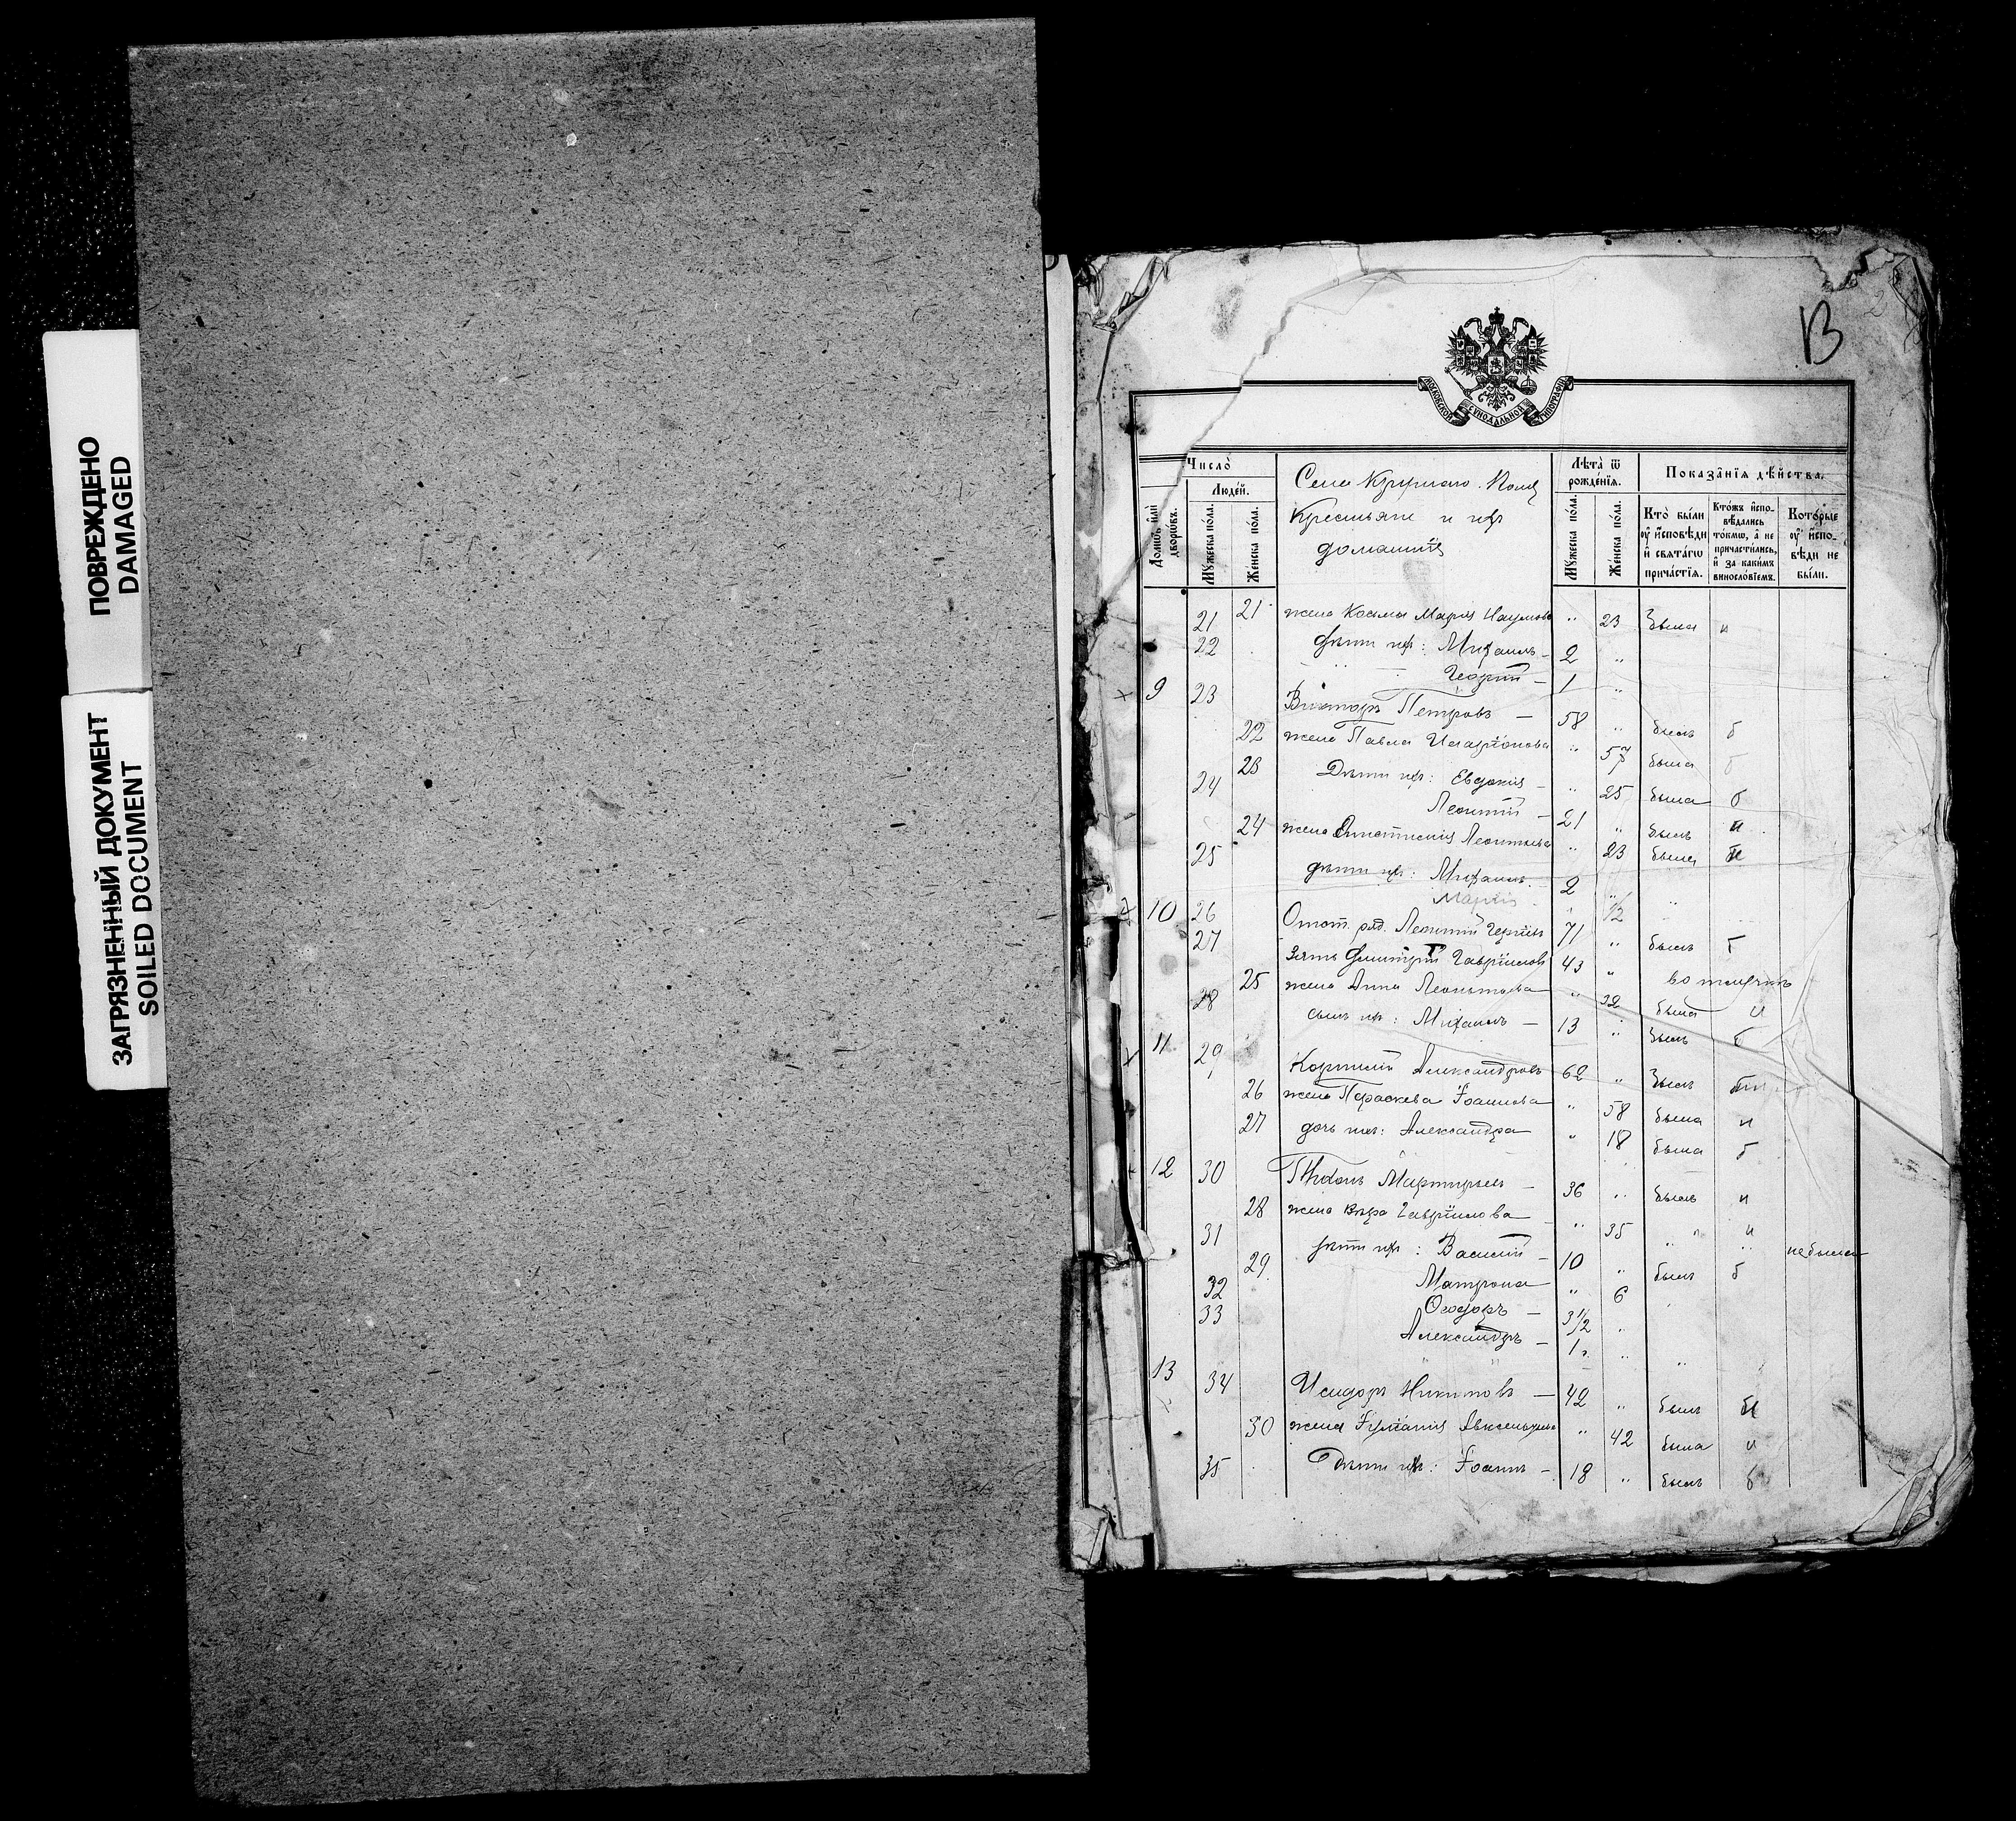 ПОВРЕЖДЕНО
DAMAGED
ЗАГРЯЗНЕННЫЙ ДОКУМЕНТ
SOILED DOCUMENT
13
МОСКОВСКОЙ СУНОДАЛЬНОЙ ТИПОГРАФІИ
Число̀
Людей.
Домѡвъ и҆лѝ дворѡвъ.
Мꙋ́жеска по́ла.
Же́нска по́ла.
Села Круглаго Поля
Крестьяне и ихъ
домашнія
Лѣта̀ ѿ рожде́нїѧ.
Мꙋ́жеска по́ла.
Же́нска по́ла.
Показа̑нїѧ дѣ́йства.
Кто̀ бы́ли ᲂу҆ и҆спо́вѣди и҆ свѧта́гѡ прича́стїѧ.
Кто́жъ и҆спо-вѣ́дались то́кмѡ, а҆ не причасти́лись, и҆ за каки́мъ винословіемъ.
Кото́рые ᲂу҆ и҆спо-вѣди не бы́ли.
21 жена Косьмы Марія Наумова " 23 была и
21 дѣти ихъ: Михаилъ - 2 "
22 Георгій - 1 "
9 23 Викторъ Петровъ - 58 " былъ б
22 жена Павла Иларіонова " 57 была б
23 Дѣти ихъ: Евдокія - " 25 была б
24 Леонтій - 21 " былъ и
24 жена Анастасія Леонтьева " 23 была
25 дѣти ихъ: Михаилъ 2 "
Марія 1/2
10 26 Отст. ряд. Леонтій 71 " былъ
27 Зять Димитрій Гавріиловъ 43 "
25 жена Анна Леонтьева " 32 была и
28 сынъ ихъ: Михаилъ - 13 " былъ б
11 29 Корнилій Александровъ 62 " былъ
26 жена Параскева Іоаннова " 58 была и
27 дочь ихъ: Александра " 18 была б
12 30 Тихонъ Мартирьевъ - 36 " былъ и
28 жена Вѣра Гавріилова " 35 " и
31 дѣти ихъ: Василій - 10 " былъ б
29 Матрона " 6
32 Ѳеодоръ - 3 1/2 "
33 Александръ - 1 г. "
не была
13 34 Исидоръ - 42 " былъ
30 жена Іуліанія Авксентьева " 42 была и
35 Дѣти ихъ: Іоаннъ - 18 " былъ б